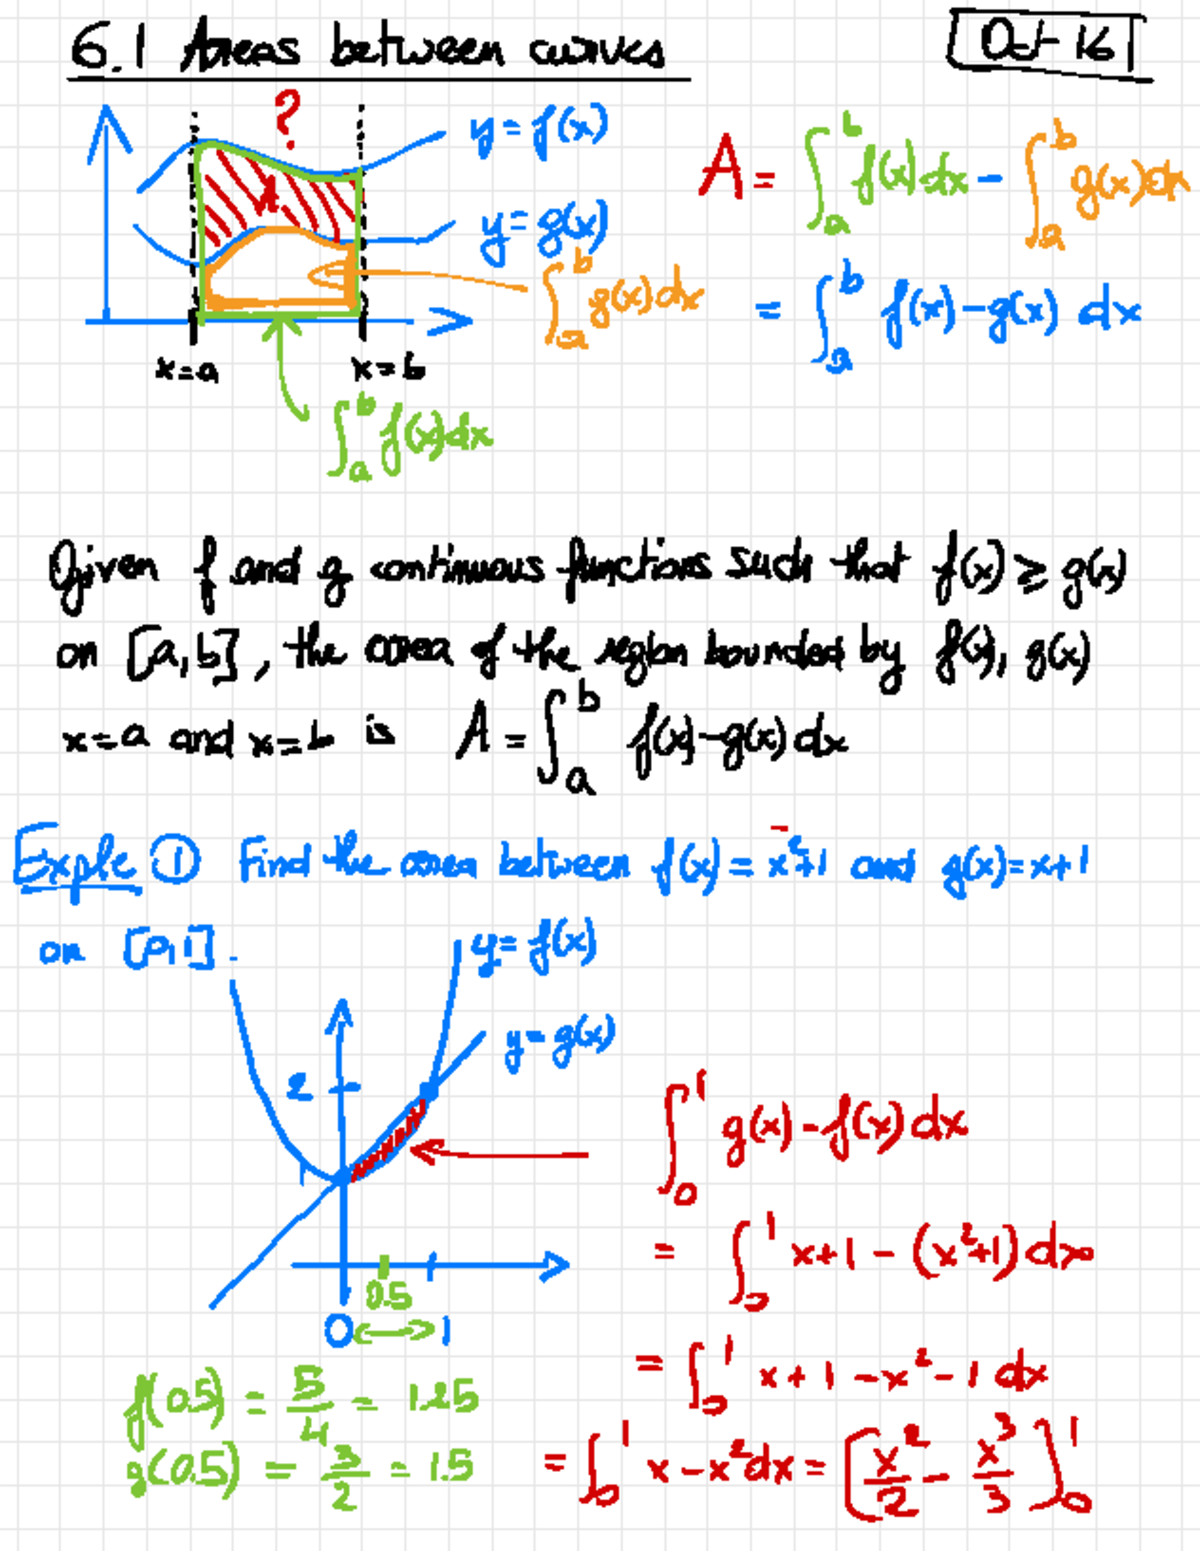 6.1 Areas between curves
Oct 16
?
A
y = f(x)
y = g(x)
∫_a^b g(x)dx
x=a
x=b
∫_a^b f(x)dx
A = ∫_a^b f(x)dx - ∫_a^b g(x)dx
= ∫_a^b f(x)-g(x) dx
Given f and g continuous functions such that f(x) ≥ g(x)
on [a,b], the area of the region bounded by f(x), g(x)
x=a and x=b is A = ∫_a^b f(x)-g(x) dx
Exple ① Find the area between f(x) = x²+1 and g(x)=x+1
on [0,1].
y = f(x)
y = g(x)
2
1
0.5
0
1
f(0.5) = 5/4 = 1.25
g(0.5) = 3/2 = 1.5
∫_0^1 g(x)-f(x) dx
= ∫_0^1 x+1 - (x²+1) dx
= ∫_0^1 x+1-x²-1 dx
= ∫_0^1 x-x² dx = [x²/2 - x³/3]_0^1